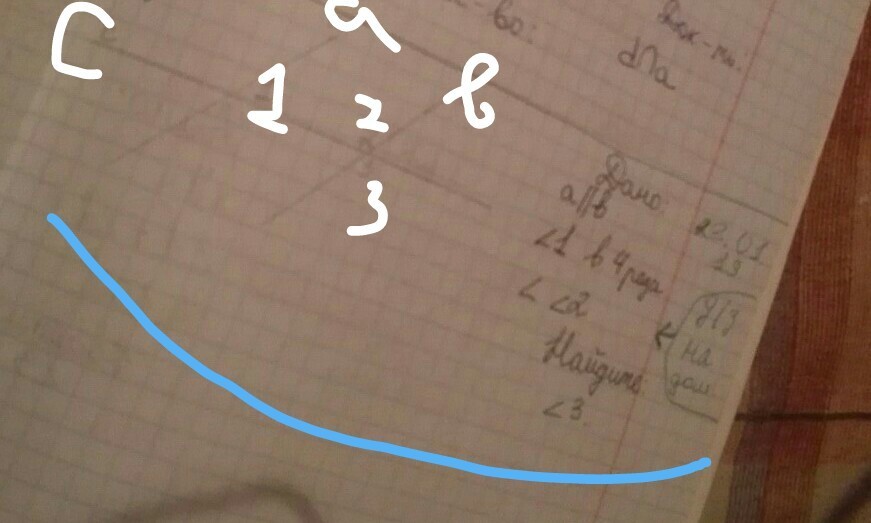 c
a
1
2
в
3
Док-ть:
d∩a
Дано:
a||в
∠1 в 4 раза
< ∠2
Найдите
∠3.
22.01
19
Д/з
на
дом